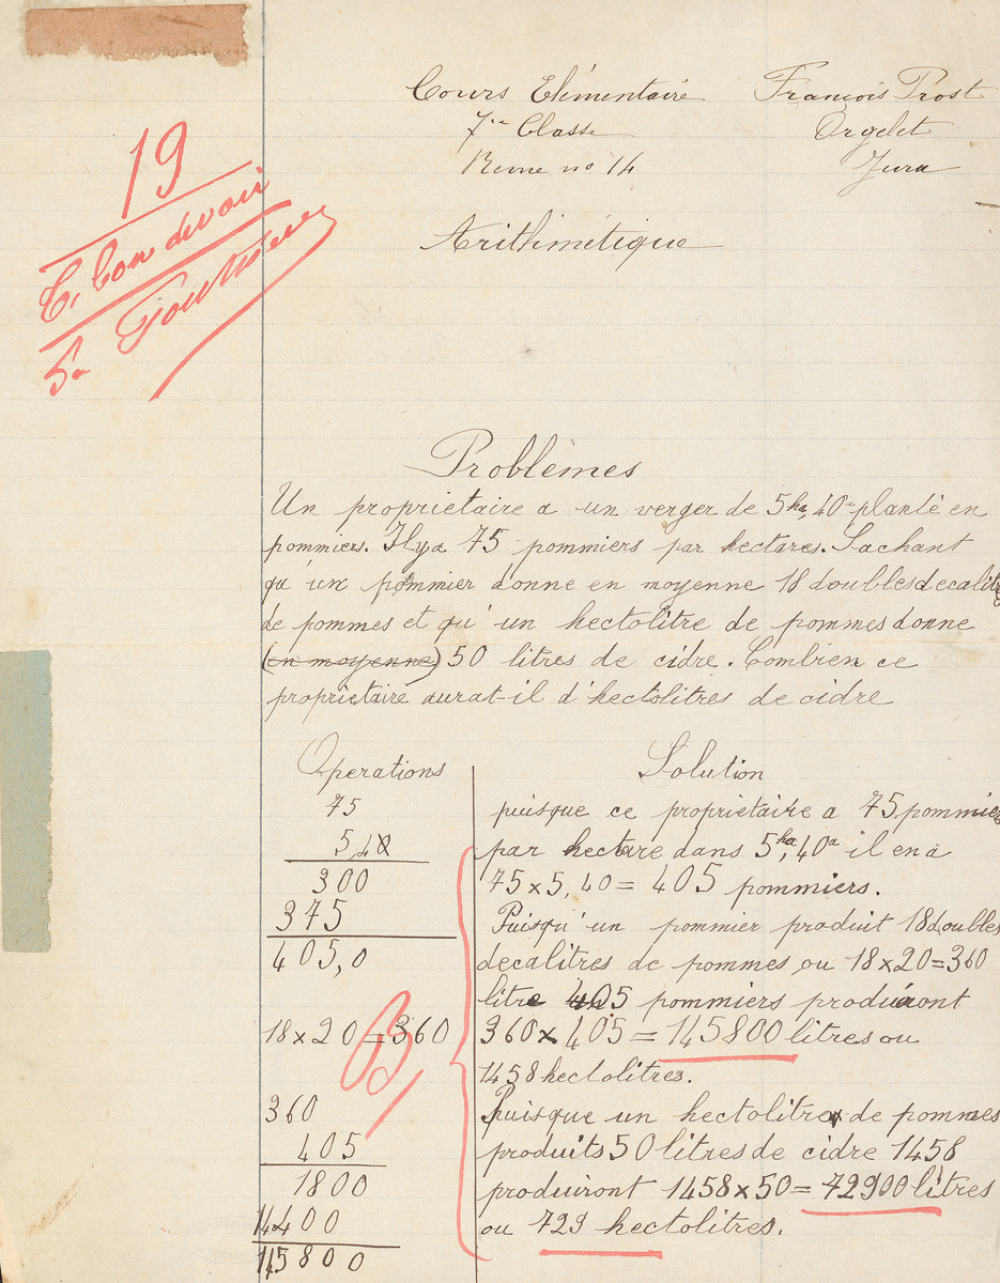 Cours Elémentaire
7me Classe
Revue no 14
François Prost
Orgelet
Jura
19
T. bon devoir
Arithmétique
Problèmes
Un proprietaire a un verger de 5ha,40a planté en
pommiers. Il y a 75 pommiers par hectares. Sachant
qu'un pommier donne en moyenne 18 doubles decalitres
de pommes et qu'un hectolitre de pommes donne
(en moyenne) 50 litres de cidre. Combien ce
propriétaire aurat-il d'hectolitres de cidre
Operations
75
5,40
300
375
405,0
18 x 20 = 360
B,
360
405
1800
14400
145800
Solution
puisque ce propriétaire a 75 pommiers
par hectare dans 5ha,40a il en a
75 x 5,40 = 405 pommiers.
Puisqu'un pommier produit 18 doubles
decalitres de pommes ou 18 x 20 = 360
litre 405 pommiers produiront
360 x 405 = 145800 litres ou
1458 hectolitres.
Puisque un hectolitre de pommes
produits 50 litres de cidre 1458
produiront 1458 x 50 = 72900 litres
ou 729 hectolitres.